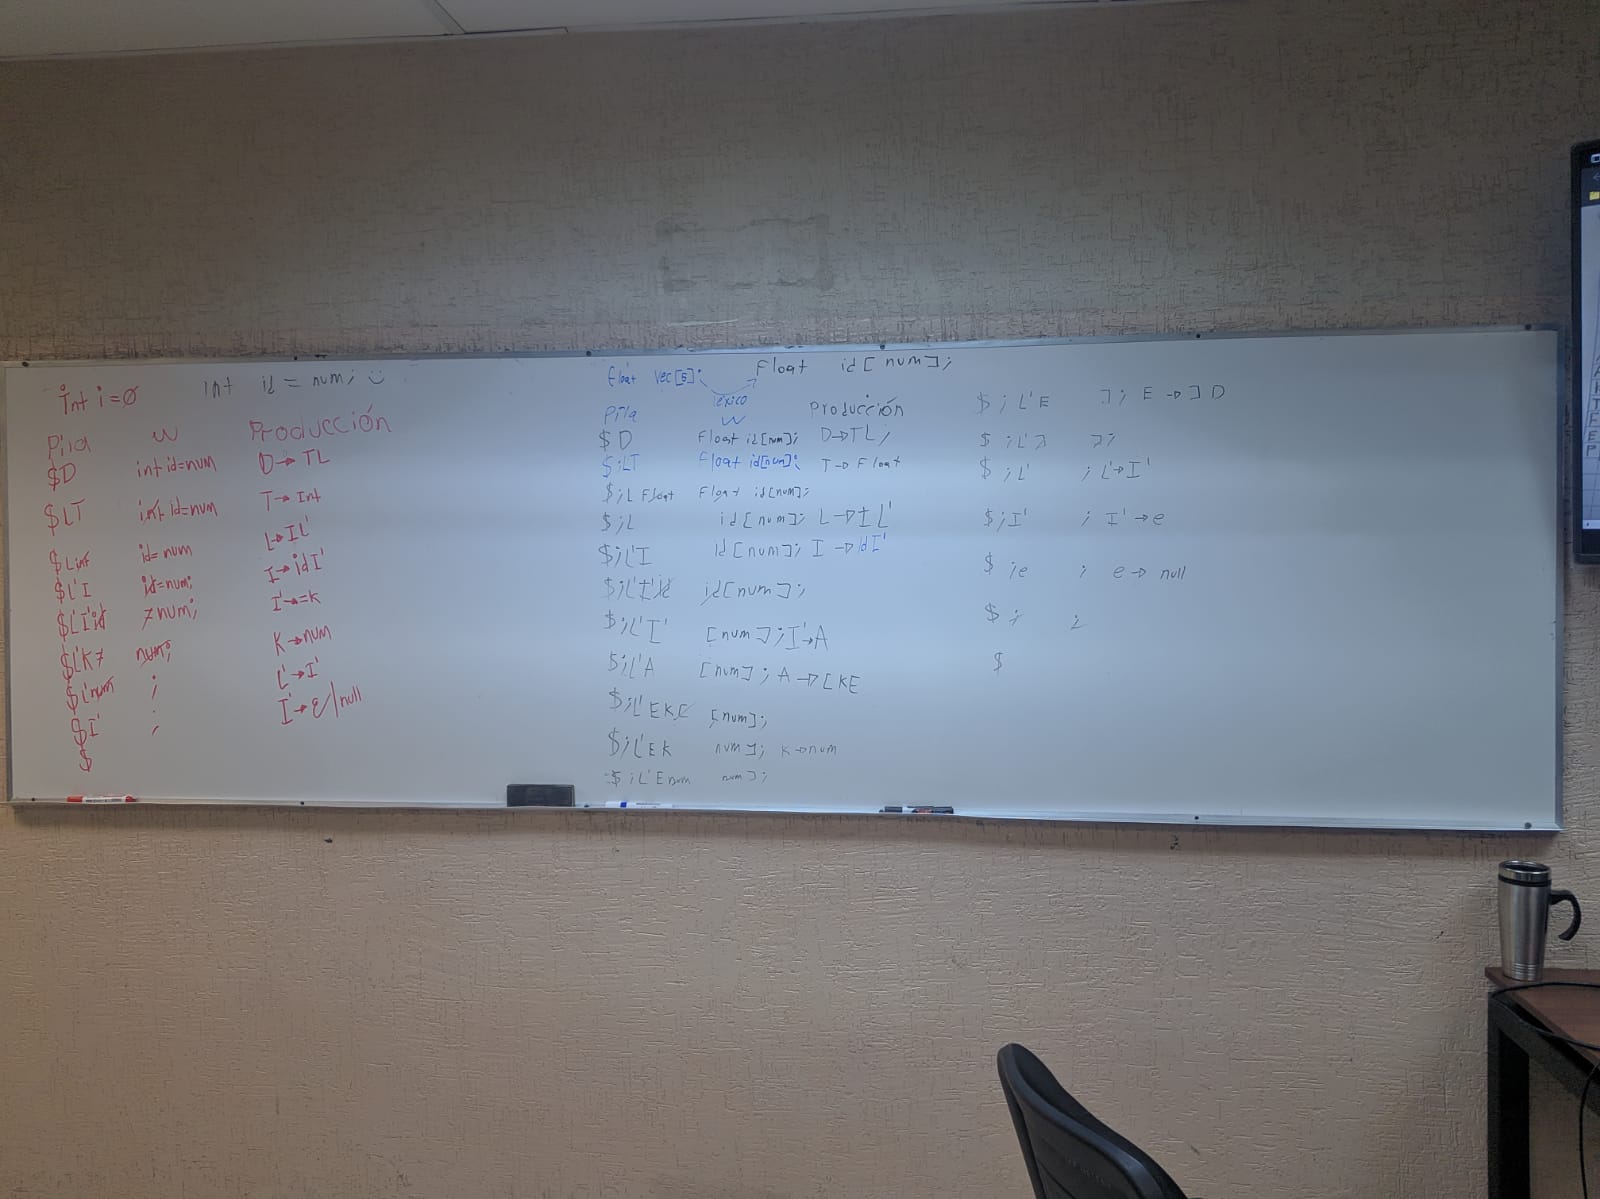 int i=0 int id = num; :)
Pila w Producción
$D int id=num D→TL
$LT int id=num T→Int
$Lint id=num L→IL'
$L'I id=num; I→idI'
$L'I'id =num; I'→=K
$L'K= num; K→num
$L'num ; L'→I'
$I' ; I'→ε/null
$
float vec[5]; Float id[num];
léxico
Pila w Producción
$D Float id[num]; D→TL;
$;LT Float id[num]; T→Float
$;L Float Float id[num];
$;L id[num]; L→IL'
$;L'I id[num]; I→idI'
$;L'I'id id[num];
$;L'I' [num]; I'→A
$;L'A [num]; A→[KE
$;L'EK[ [num];
$;L'EK num]; K→num
$;L'Enum num];
$;L'E ]; E→]D
$;L'] ];
$;L' ; L'→I'
$;I' ; I'→e
$;e ; e→null
$; ;
$
A
K
I
F
E
P